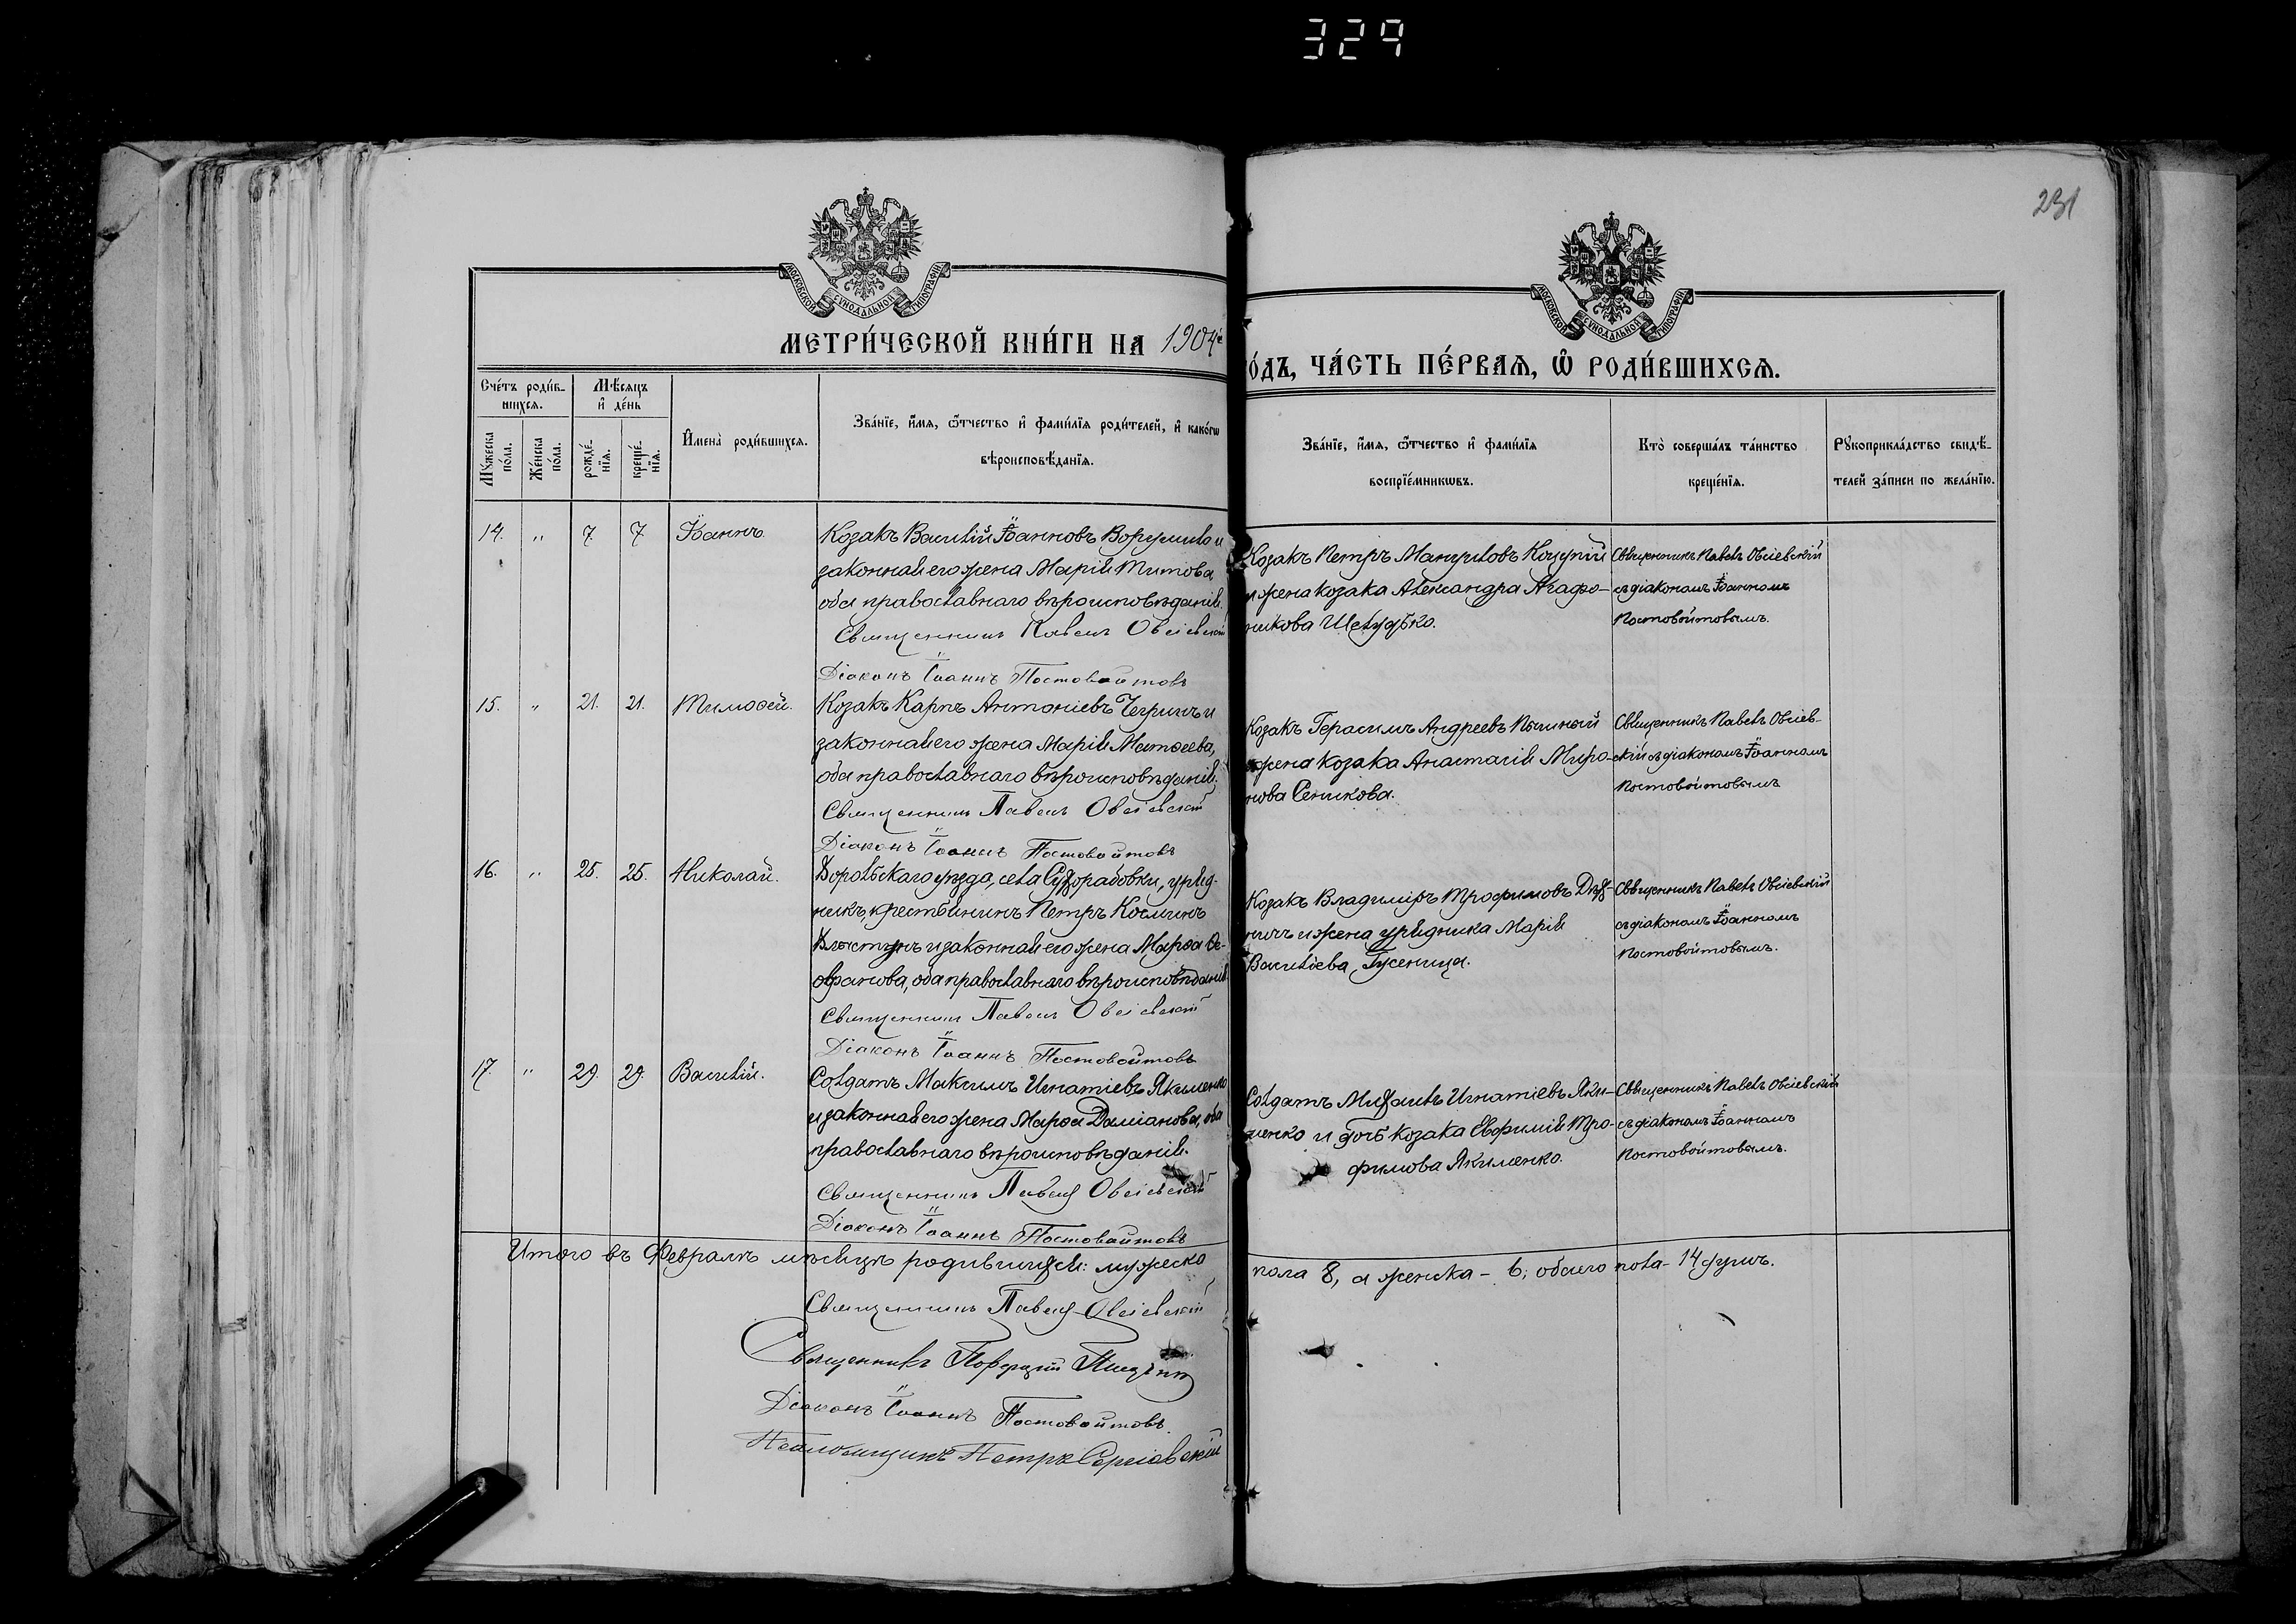 329
231
МОСКОВСКОЙ СѴНОДАЛЬНОЙ ТИПОГРАФІИ
МОСКОВСКОЙ СѴНОДАЛЬНОЙ ТИПОГРАФІИ
МЕТРИ́ЧЕСКОЙ КНИ́ГИ НА 1904й
ГО́ДЪ, ЧА́СТЬ ПЕ́РВАѦ, Ѿ РОДИ́ВШИХСѦ.
Сче́тъ роди́в-
шихсѧ.
Мѣ́сѧцъ
и҆ де́нь
Мꙋ́жеска
по́ла.
Же́нска
по́ла.
рожде́-
нїѧ.
креще́-
нїѧ.
И҆мена̀ роди́вшихсѧ.
Зва́нїе, и҆́мѧ, ѻ҆́тчество и҆ фами́лїѧ роди́телей, и҆ како́гѡ
вѣроисповѣ́данїѧ.
Зва́нїе, и҆́мѧ, ѻ҆́тчество и҆ фами́лїѧ
воспрїе́мникѡвъ.
Кто̀ соверша́лъ та́инство
креще́нїѧ.
Рꙋкоприкла́дство свидѣ́-
телей за́писи по жела́нїю.
14. " 7. 7. Іоаннъ.
Козакъ Василій Іоанновъ и
законная его жена Марія Титова
оба православнаго вѣроисповѣданія.
Священникъ Павелъ Овсіевскій
Діаконъ Іоаннъ Постовойтовъ
Козакъ Петръ Мануиловъ Коцупій
и жена козака Александра Агафо-
никова Шелудько.
Священникъ Павелъ Овсіевскій
съ діакономъ Іоанномъ
Постовойтовымъ.
15. " 21. 21. Тимоѳей.
Козакъ Карпъ Антоніевъ Чегринъ и
законная его жена Марія Матѳеева,
оба православнаго вѣроисповѣданія.
Священникъ Павелъ Овсіевскій
Діаконъ Іоаннъ Постовойтовъ
Козакъ Герасимъ Андреевъ
жена козака Анастасія Миро-
нова Сеникова.
Священникъ Павелъ Овсіев-
скій съ діакономъ Іоанномъ
Постовойтовымъ
16. " 25. 25. Николай.
Хорольскаго уѣзда, села Сухорабовки, уряд-
никъ, крестьянинъ Петръ Косминъ
и законная его жена Марѳа Ѳе-
офанова, оба православнаго вѣроисповѣданія
Священникъ Павелъ Овсіевскій
Діаконъ Іоаннъ Постовойтовъ
Козакъ Владиміръ Трофимовъ
и жена урядника Марія
Василіева Гусеница.
Священникъ Павелъ Овсіевскій
съ діакономъ Іоанномъ
Постовойтовымъ.
17. " 29. 29. Василій.
Солдатъ Максимъ Игнатіевъ Якименко
и законная его жена Марѳа Даміанова, оба
православнаго вѣроисповѣданія.
Священникъ Павелъ Овсіевскій
Діаконъ Іоаннъ Постовойтовъ
Солдатъ Михаилъ Игнатіевъ Яки-
менко и дочь козака Евфимія Тро-
фимова Якименко.
Священникъ Павелъ Овсіевскій
съ діакономъ Іоанномъ
Постовойтовымъ.
Итого въ Февралѣ мѣсяцѣ родившихся: мужеска
пола 8, а женска - 6; обоего пола - 14 душъ.
Священникъ Павелъ Овсіевскій
Священникъ
Діаконъ Іоаннъ Постовойтовъ.
Псаломщикъ Петръ Сергіевскій